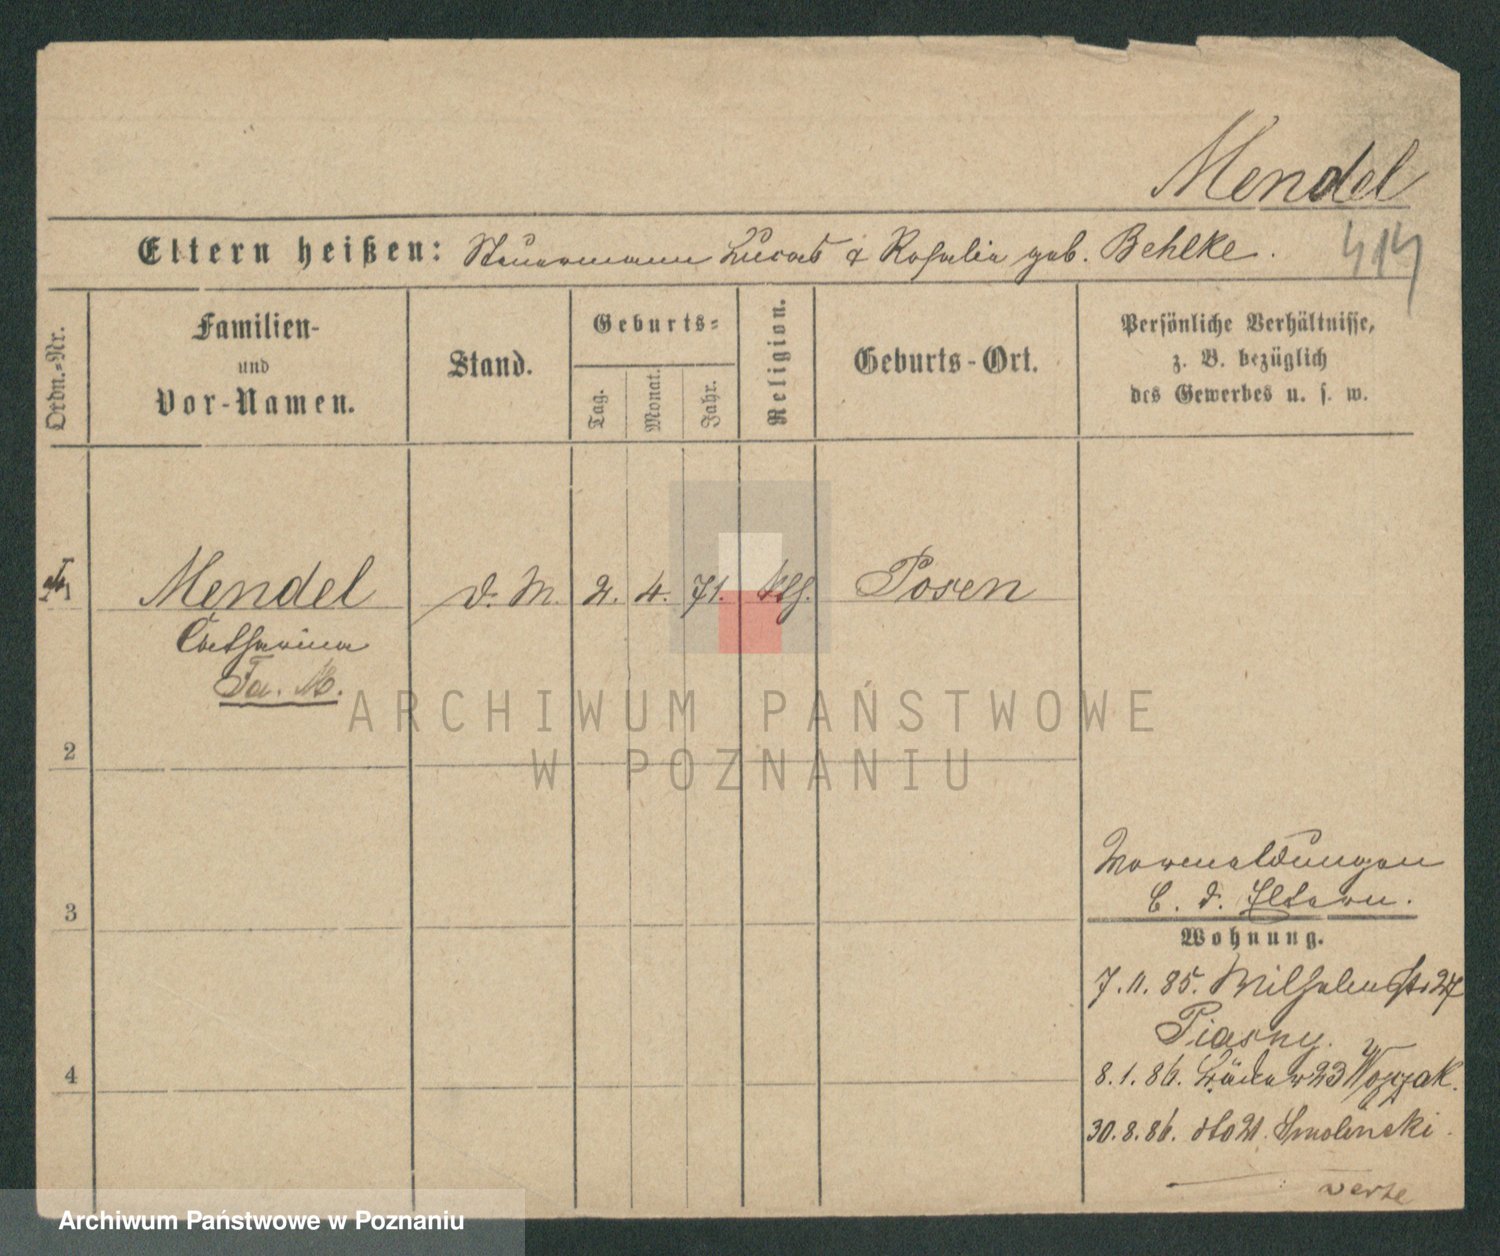 Mendel
414
Eltern heißen: Steuermann Lucas & Rosalie geb. Behlke.
Ordn.-Nr.
Familien-
und
Vor-Namen.
Stand.
Geburts-
Tag.
Monat.
Jahr.
Religion.
Geburts-Ort.
Persönliche Verhältnisse,
z. B. bezüglich
des Gewerbes u. s. w.
1 Mendel d. M. 2. 4. 71. Posen
Catharina
ARCHIWUM PAŃSTWOWE
W POZNANIU
2
3
4
Vormeldungen
b. d. Eltern.
Wohnung.
7.11.85. Wilhelmstr 27
Piasny.
8.1.86. 23 Woyzak.
30.8.86. dto 21. Smolinski.
verte
Archiwum Państwowe w Poznaniu